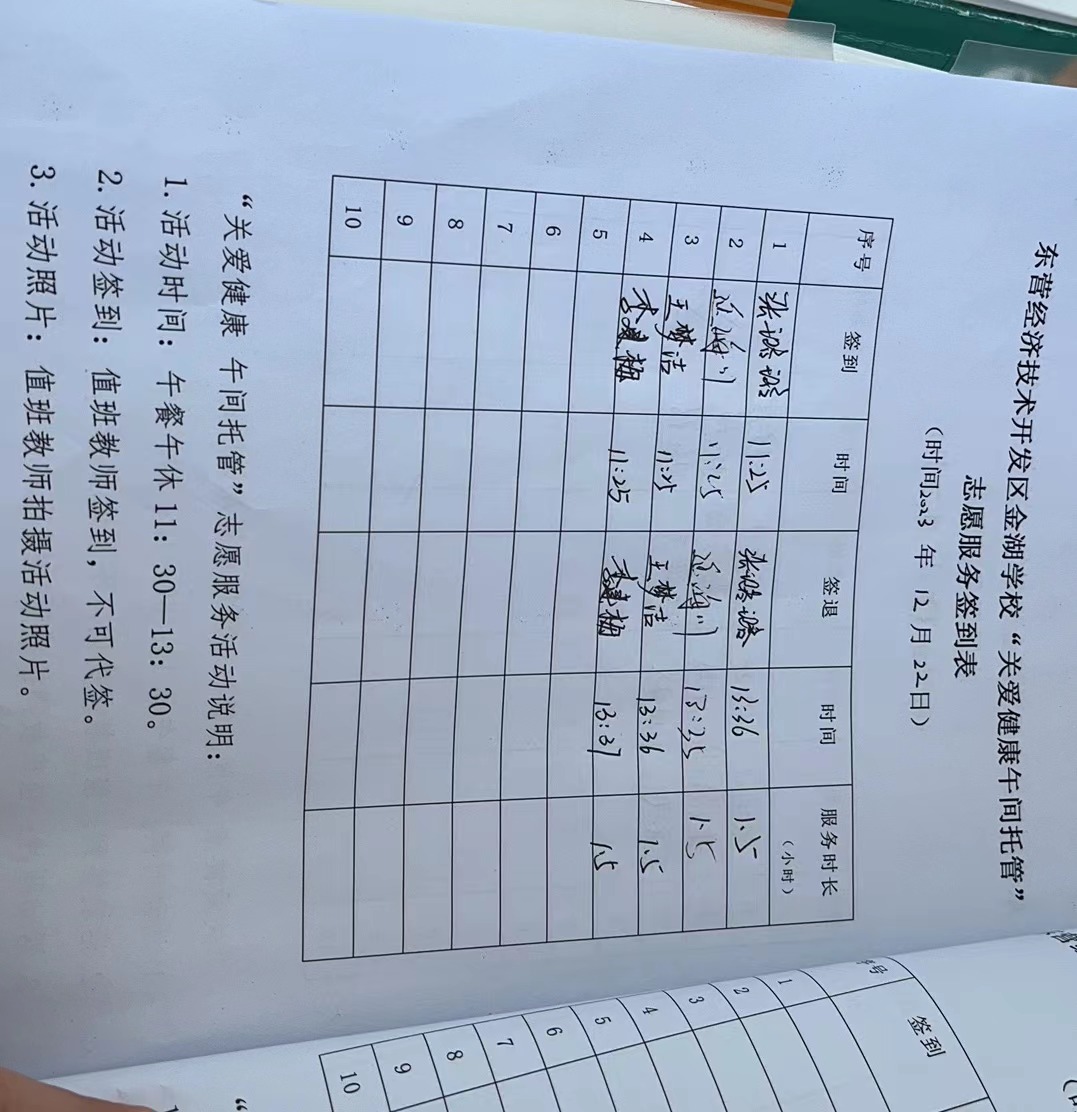 东营经济技术开发区金湖学校“关爱健康午间托管”
志愿服务签到表
（时间2023 年 12 月 22日）
序号 签到 时间 签退 时间 服务时长（小时）
1 张璐璐 11:25 张璐璐 13:36 1.5
2 11:25 13:35 1.5
3 王梦洁 11:25 王梦洁 13:36 1.5
4 李建梅 11:25 李建梅 13:37 1.5
5
6
7
8
9
10
“关爱健康 午间托管”志愿服务活动说明：
1.活动时间：午餐午休11：30—13：30。
2.活动签到：值班教师签到，不可代签。
3.活动照片：值班教师拍摄活动照片。
序号 签到
1
2
3
4
5
6
7
8
9
10
“